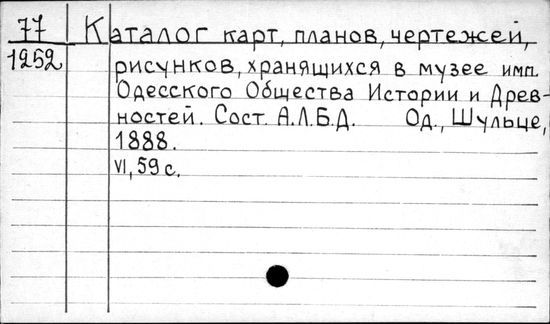 77 Каталог карт, планов, чертежей,
1252 рисунков, хранящихся в музее имп.
Одесского Общества Истории и Древ-
ностей. Сост. А.Л.Б.Д. Од., Шульце,
1888.
VI, 59 с.